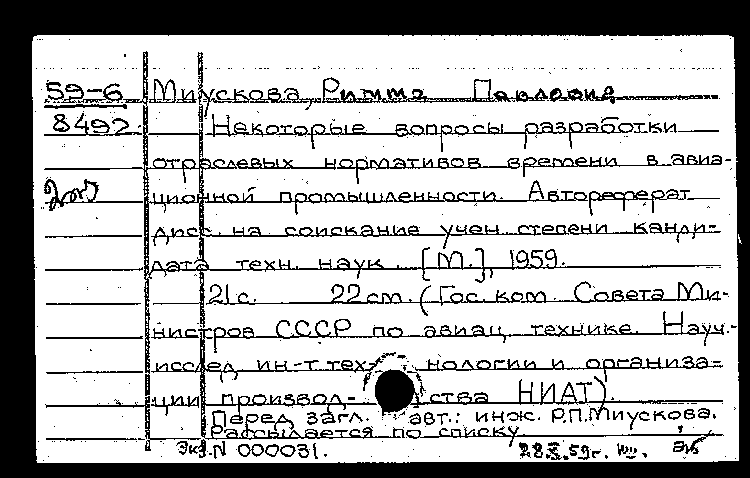 59-6 Миускова, Римма Павловна
8492 Некоторые вопросы разработки
отраслевых нормативов времени в авиа-
ционной промышленности. Автореферат
дисс. на соискание учен. степени канди-
дата техн. наук. [М.], 1959.
21 с. 22 см. (Гос. ком. Совета Ми-
нистров СССР по авиац. технике. Науч.-
исслед. ин-т технологии и организа-
ции производства НИАТ).
Перед загл. авт.: инж. Р.П.Миускова.
Рассылается по списку
Экз. N 000031. 28 X 59г.